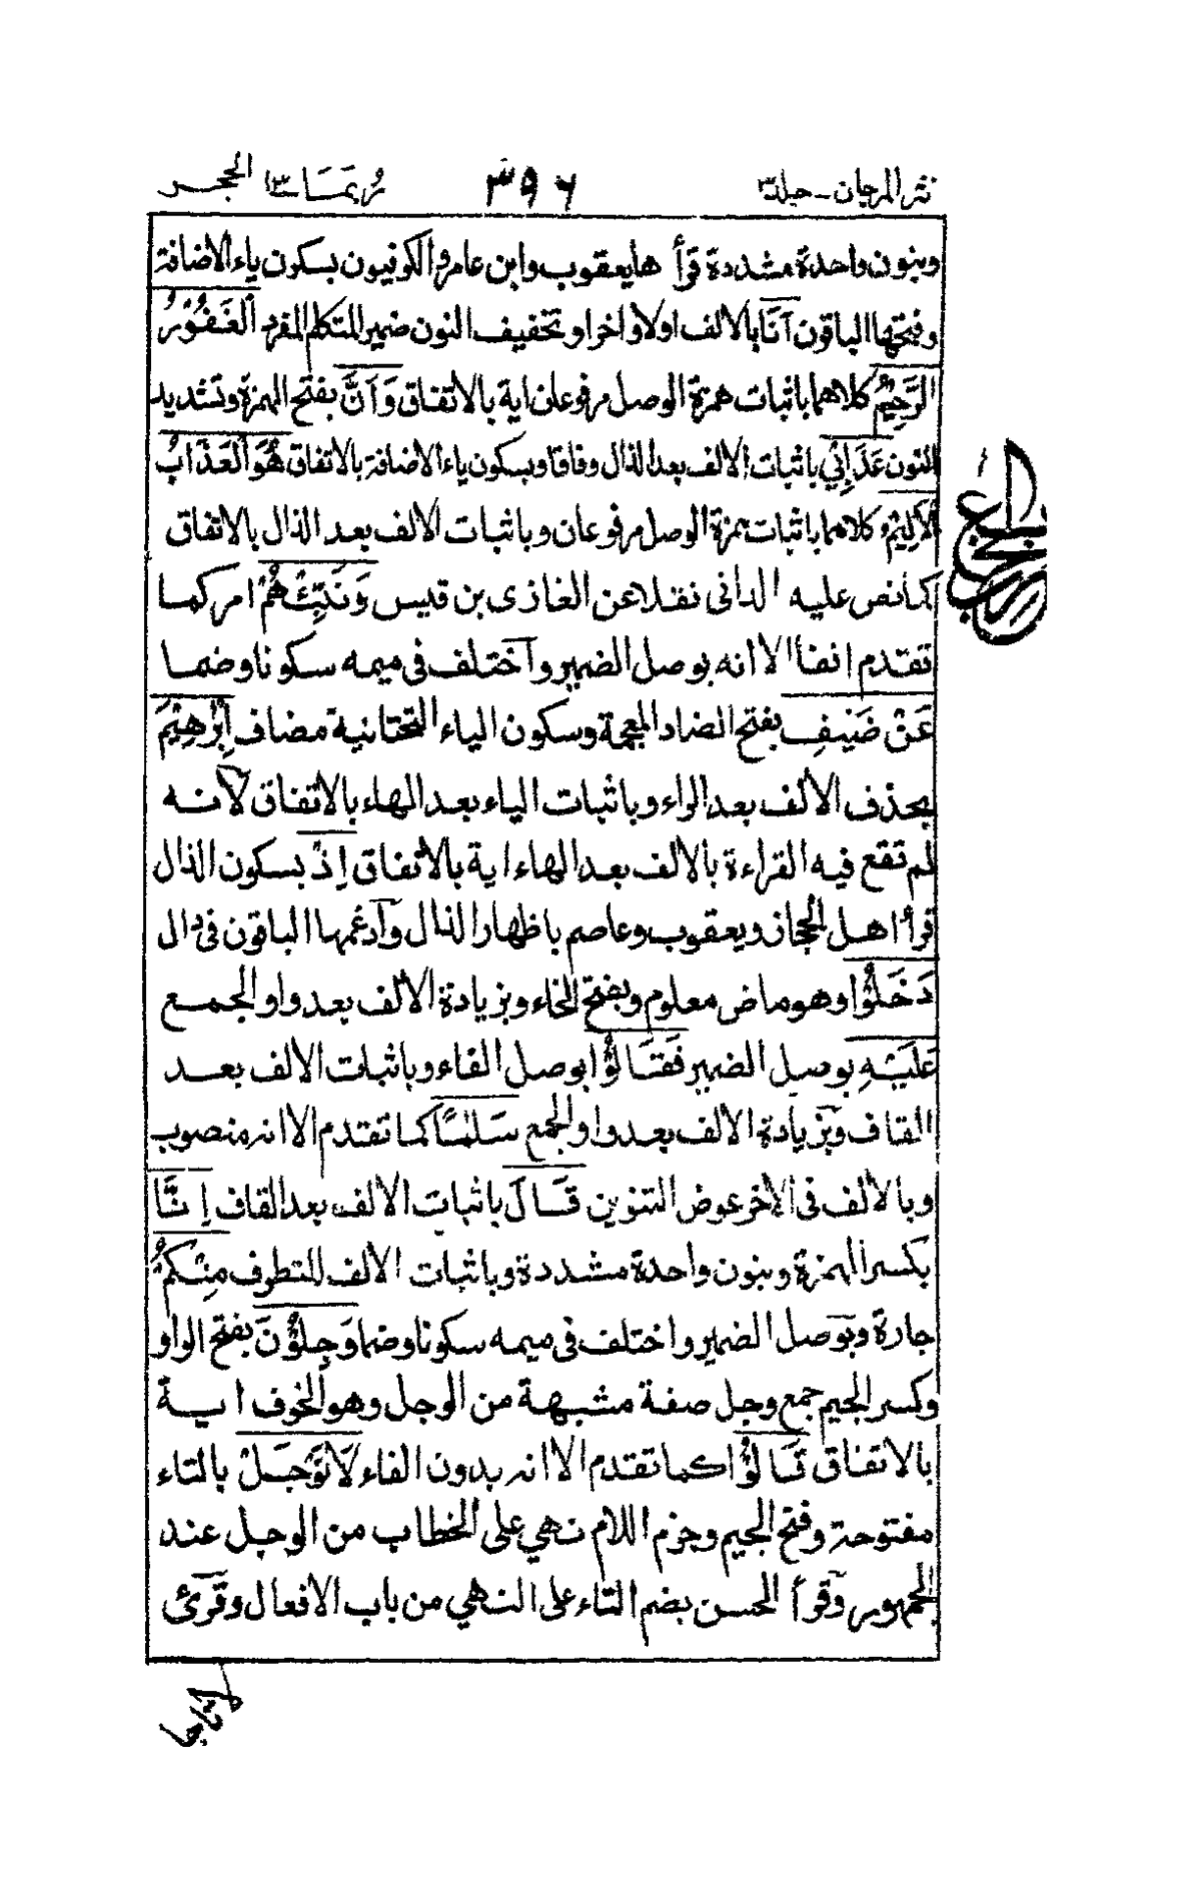 نثر المرجان - جلد ٣ ٣٩٦ ربما ١٤ الحجر
وبنون واحدة مشددة قرأ هايعقوب وابن عامر والكوفيون بسكون ياء الاضافة
وفتحها الباقون اَنَا بالالف اولا واخرا وتخفيف النون ضمير المتكلم المفرد اَلْغَفُوْرُ
الرَّحِيْمُ كلاهما باثبات همزة الوصل مرفوعان اية بالاتفاق وَاَنَّ بفتح الهمزة وتشديد
النون عَذَابِيْ باثبات الالف بعد الذال وفاقا وبسكون ياء الاضافة بالاتفاق هُوَ الْعَذَابُ
الْاَلِيْمُ كلاهما باثبات همزة الوصل مرفوعان وباثبات الالف بعد الذال بالاتفاق
كما نص عليه الدانى نقلا عن الغازى بن قيس وَنَبِّئْهُمْ امر كما
تقدم انفا الا انه بوصل الضمير واختلف فى ميمه سكونا وضما
عَنْ ضَيْفِ بفتح الضاد المعجمة وسكون الياء التحتانية مضاف اِبْرٰهِيْمَ
بحذف الالف بعد الراء وباثبات الياء بعد الهاء بالاتفاق لانه
لم تقع فيه القراءة بالالف بعد الهاء اية بالاتفاق اِذْ بسكون الذال
قرأ اهل الحجاز ويعقوب وعاصم باظهار الذال وادغمها الباقون فى دال
دَخَلُوْا وهو ماض معلوم وبفتح الخاء وبزيادة الالف بعد واو الجمع
عَلَيْهِ بوصل الضمير فَقَالُوْا بوصل الفاء وباثبات الالف بعد
القاف وبزيادة الالف بعد واو الجمع سَلٰمًا كما تقدم الا انه منصوب
وبالالف فى الاخر عوض التنوين قَالَ باثبات الالف بعد القاف اِنَّا
بكسر الهمزة وبنون واحدة مشددة وباثبات الالف للتطرف مِنْكُمْ
جارة وبوصل الضمير واختلف فى ميمه سكونا وضما وَجِلُوْنَ بفتح الواو
وكسر الجيم جمع وجل صفة مشبهة من الوجل وهو الخوف اية
بالاتفاق قَالُوْا كما تقدم الا انه بدون الفاء لَا تَوْجَلْ بالتاء
مفتوحة وفتح الجيم وجزم اللام نهي على الخطاب من الوجل عند
الجمهور وقرأ الحسن بضم التاء على النهي من باب الافعال وقرئ